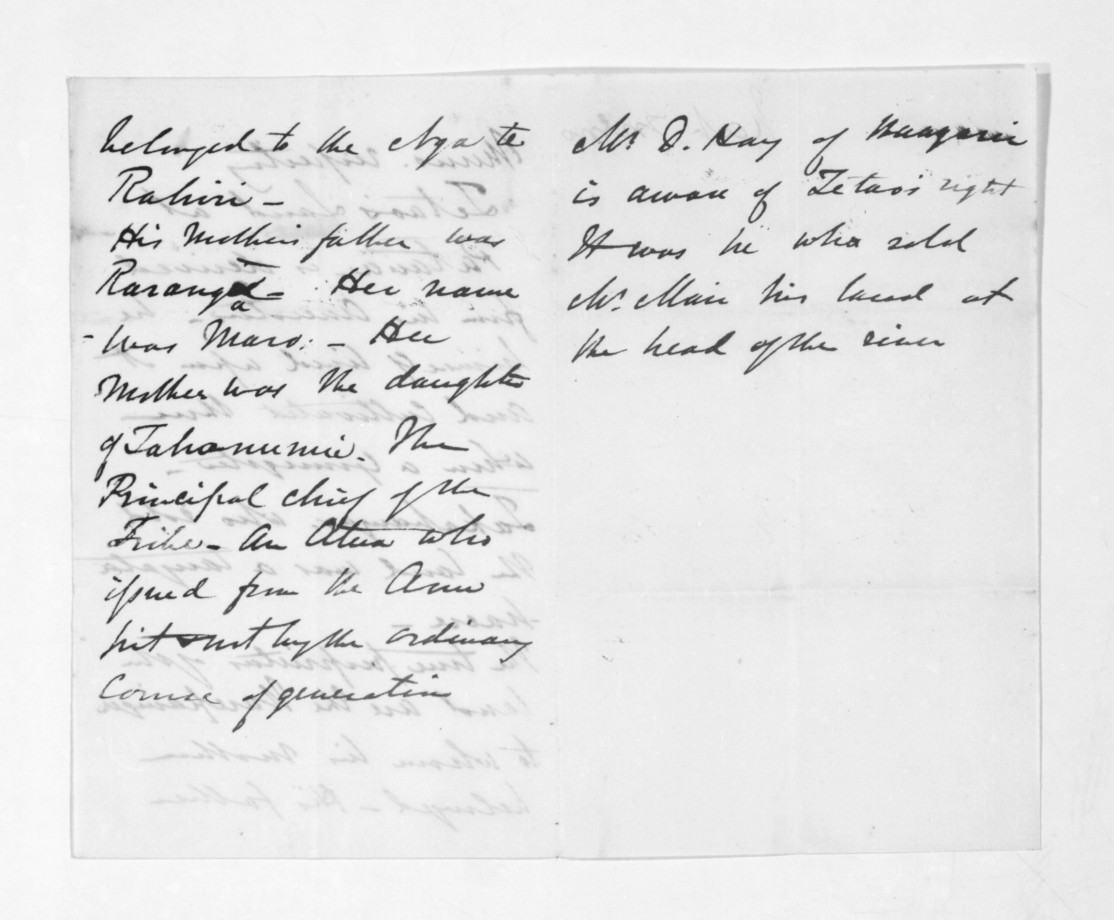 belonged to the Nga te
Rahiri -
His Mothers father was
Raranga - Her name
- was Maro: - Her
Mother was the daughter
of Tahanumia. The
Principal chief of the
Tribe - An Atua who
issued from the Arm
pit not by the ordinary
Course of generation
Mr. D. Hay of Waugarie
is aware of Tetao's right
It was he who sold
Mr. Mair his land at
the head of the river